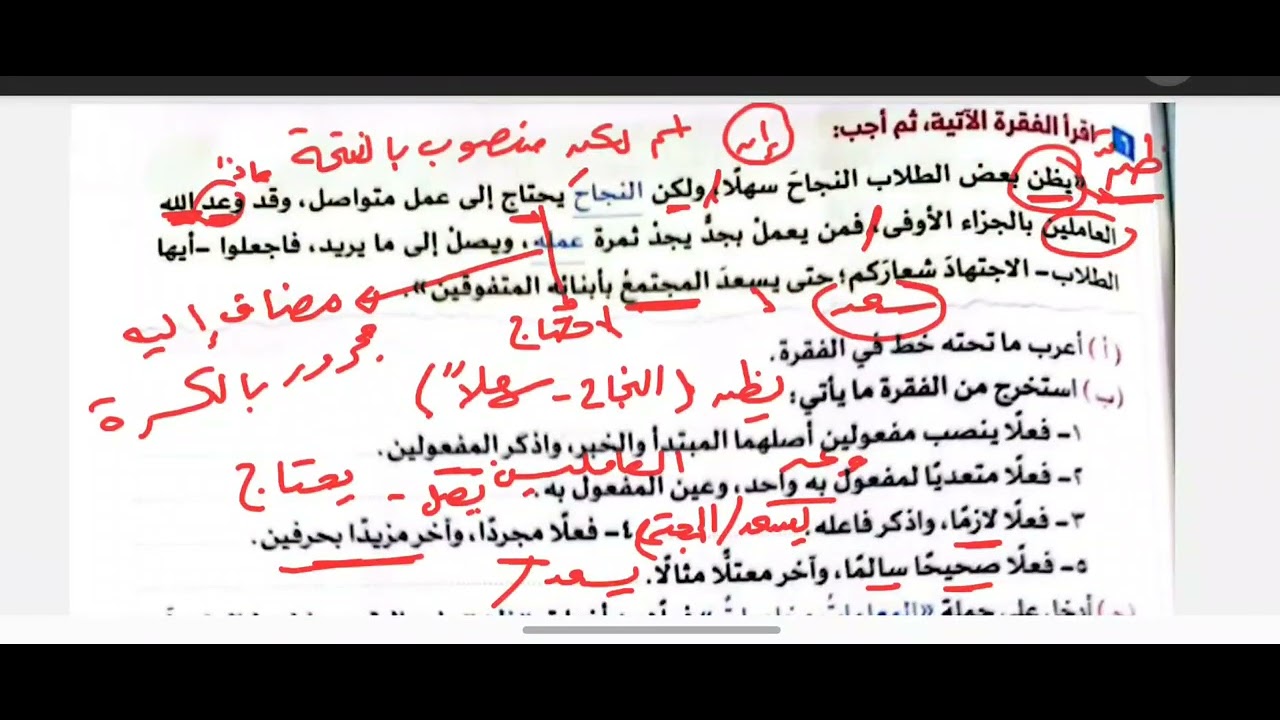 اقرأ الفقرة الآتية، ثم أجب:
إن
اسم لكن منصوب بالفتحة
ظن
«يظن بعض الطلاب النجاحَ سهلًا، ولكن النجاح يحتاج إلى عمل متواصل، وقد وعد الله
العاملين بالجزاء الأوفى، فمن يعملْ بجدٍّ يجدْ ثمرة عمله، ويصلْ إلى ما يريد، فاجعلوا -أيها
الطلاب- الاجتهادَ شعارَكم؛ حتى يسعدَ المجتمعُ بأبنائه المتفوقين».
مضاف إليه
مجرور بالكسرة
احتاج
سعد
(أ) أعرب ما تحته خط في الفقرة.
(ب) استخرج من الفقرة ما يأتي:
يظن (النجاح - سهلاً)
١- فعلًا ينصب مفعولين أصلهما المبتدأ والخبر، واذكر المفعولين.
وعد العاملين
٢- فعلًا متعديًا لمفعول به واحد، وعين المفعول به.
يصل - يحتاج
٣- فعلًا لازمًا، واذكر فاعله. يسعد / المجتمع
٤- فعلًا مجردًا، وآخر مزيدًا بحرفين.
٥- فعلًا صحيحًا سالمًا، وآخر معتلًّا مثالًا. يسعد /